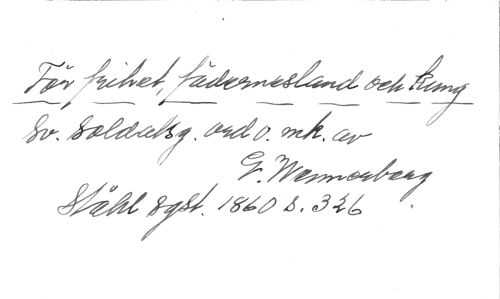 För frihet, fädernesland och kung
Sv. Soldatsg. ord o. mk. av
G. Wennerberg
Ståhl sgst. 1860 s. 326